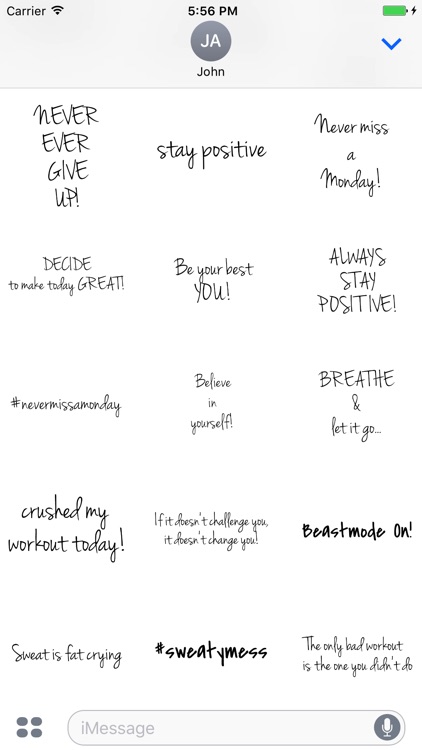 Carrier 5:56 PM
JA
John
NEVER
EVER
GIVE
UP!
stay positive
Never miss
a
Monday!
DECIDE
to make today GREAT!
Be your best
YOU!
ALWAYS
STAY
POSITIVE!
#nevermissamonday
Believe
in
yourself!
BREATHE
&
let it go...
crushed my
workout today!
If it doesn't challenge you,
it doesn't change you!
Beastmode On!
Sweat is fat crying
#sweatymess
The only bad workout
is the one you didn't do
iMessage